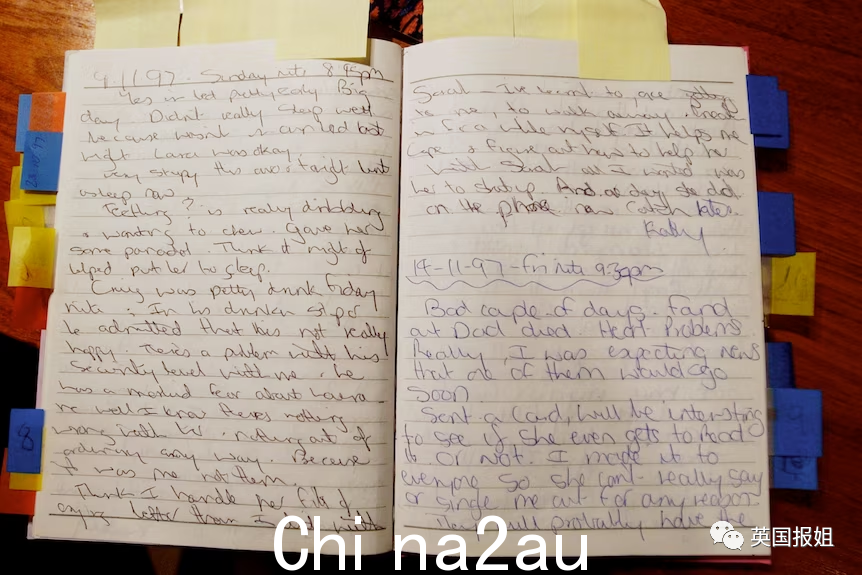 9.11.97. Sunday nite 8.45pm
Yes in bed pretty early Big
day. Didn't really sleep well
because wasn't in own bed last
night Laura was okay.
Very sleepy this arvo & taight
asleep now
Teething? is really dribbling
& wanting to chew. Gave her
some panadol. Think it might of
helped put her to sleep.
Craig was pretty drunk Friday
nite. In his drunken
he admitted that he's not really
happy. There's a problem with his
security level with me. he
has a morbid fear about Laura
me well I know theres nothing
wrong with her. nothing out of
ordinary any way. Because
it was me not them.
Think I handle her fits of
crying better than I with
Sarah - I've learnt to,
to me, to walk away
in for a while myself. It helps me
cope & figure out how to help her
With Sarah all I wanted was
her to shut up. And one day she did.
on the phone now Catch later.
Kathy
14-11-97 - Fri nite 9.30pm
Bad couple of days. Found
out Dad died Heart Problems
Really, I was expecting news
that one of them would go
soon
Sent a Card, will be interesting
to see if she even gets to Read
it or not. I made it to
everyone so she can't really say
or single me out for any reason
They will probably have the
8
9
Chi na2au
英国报姐